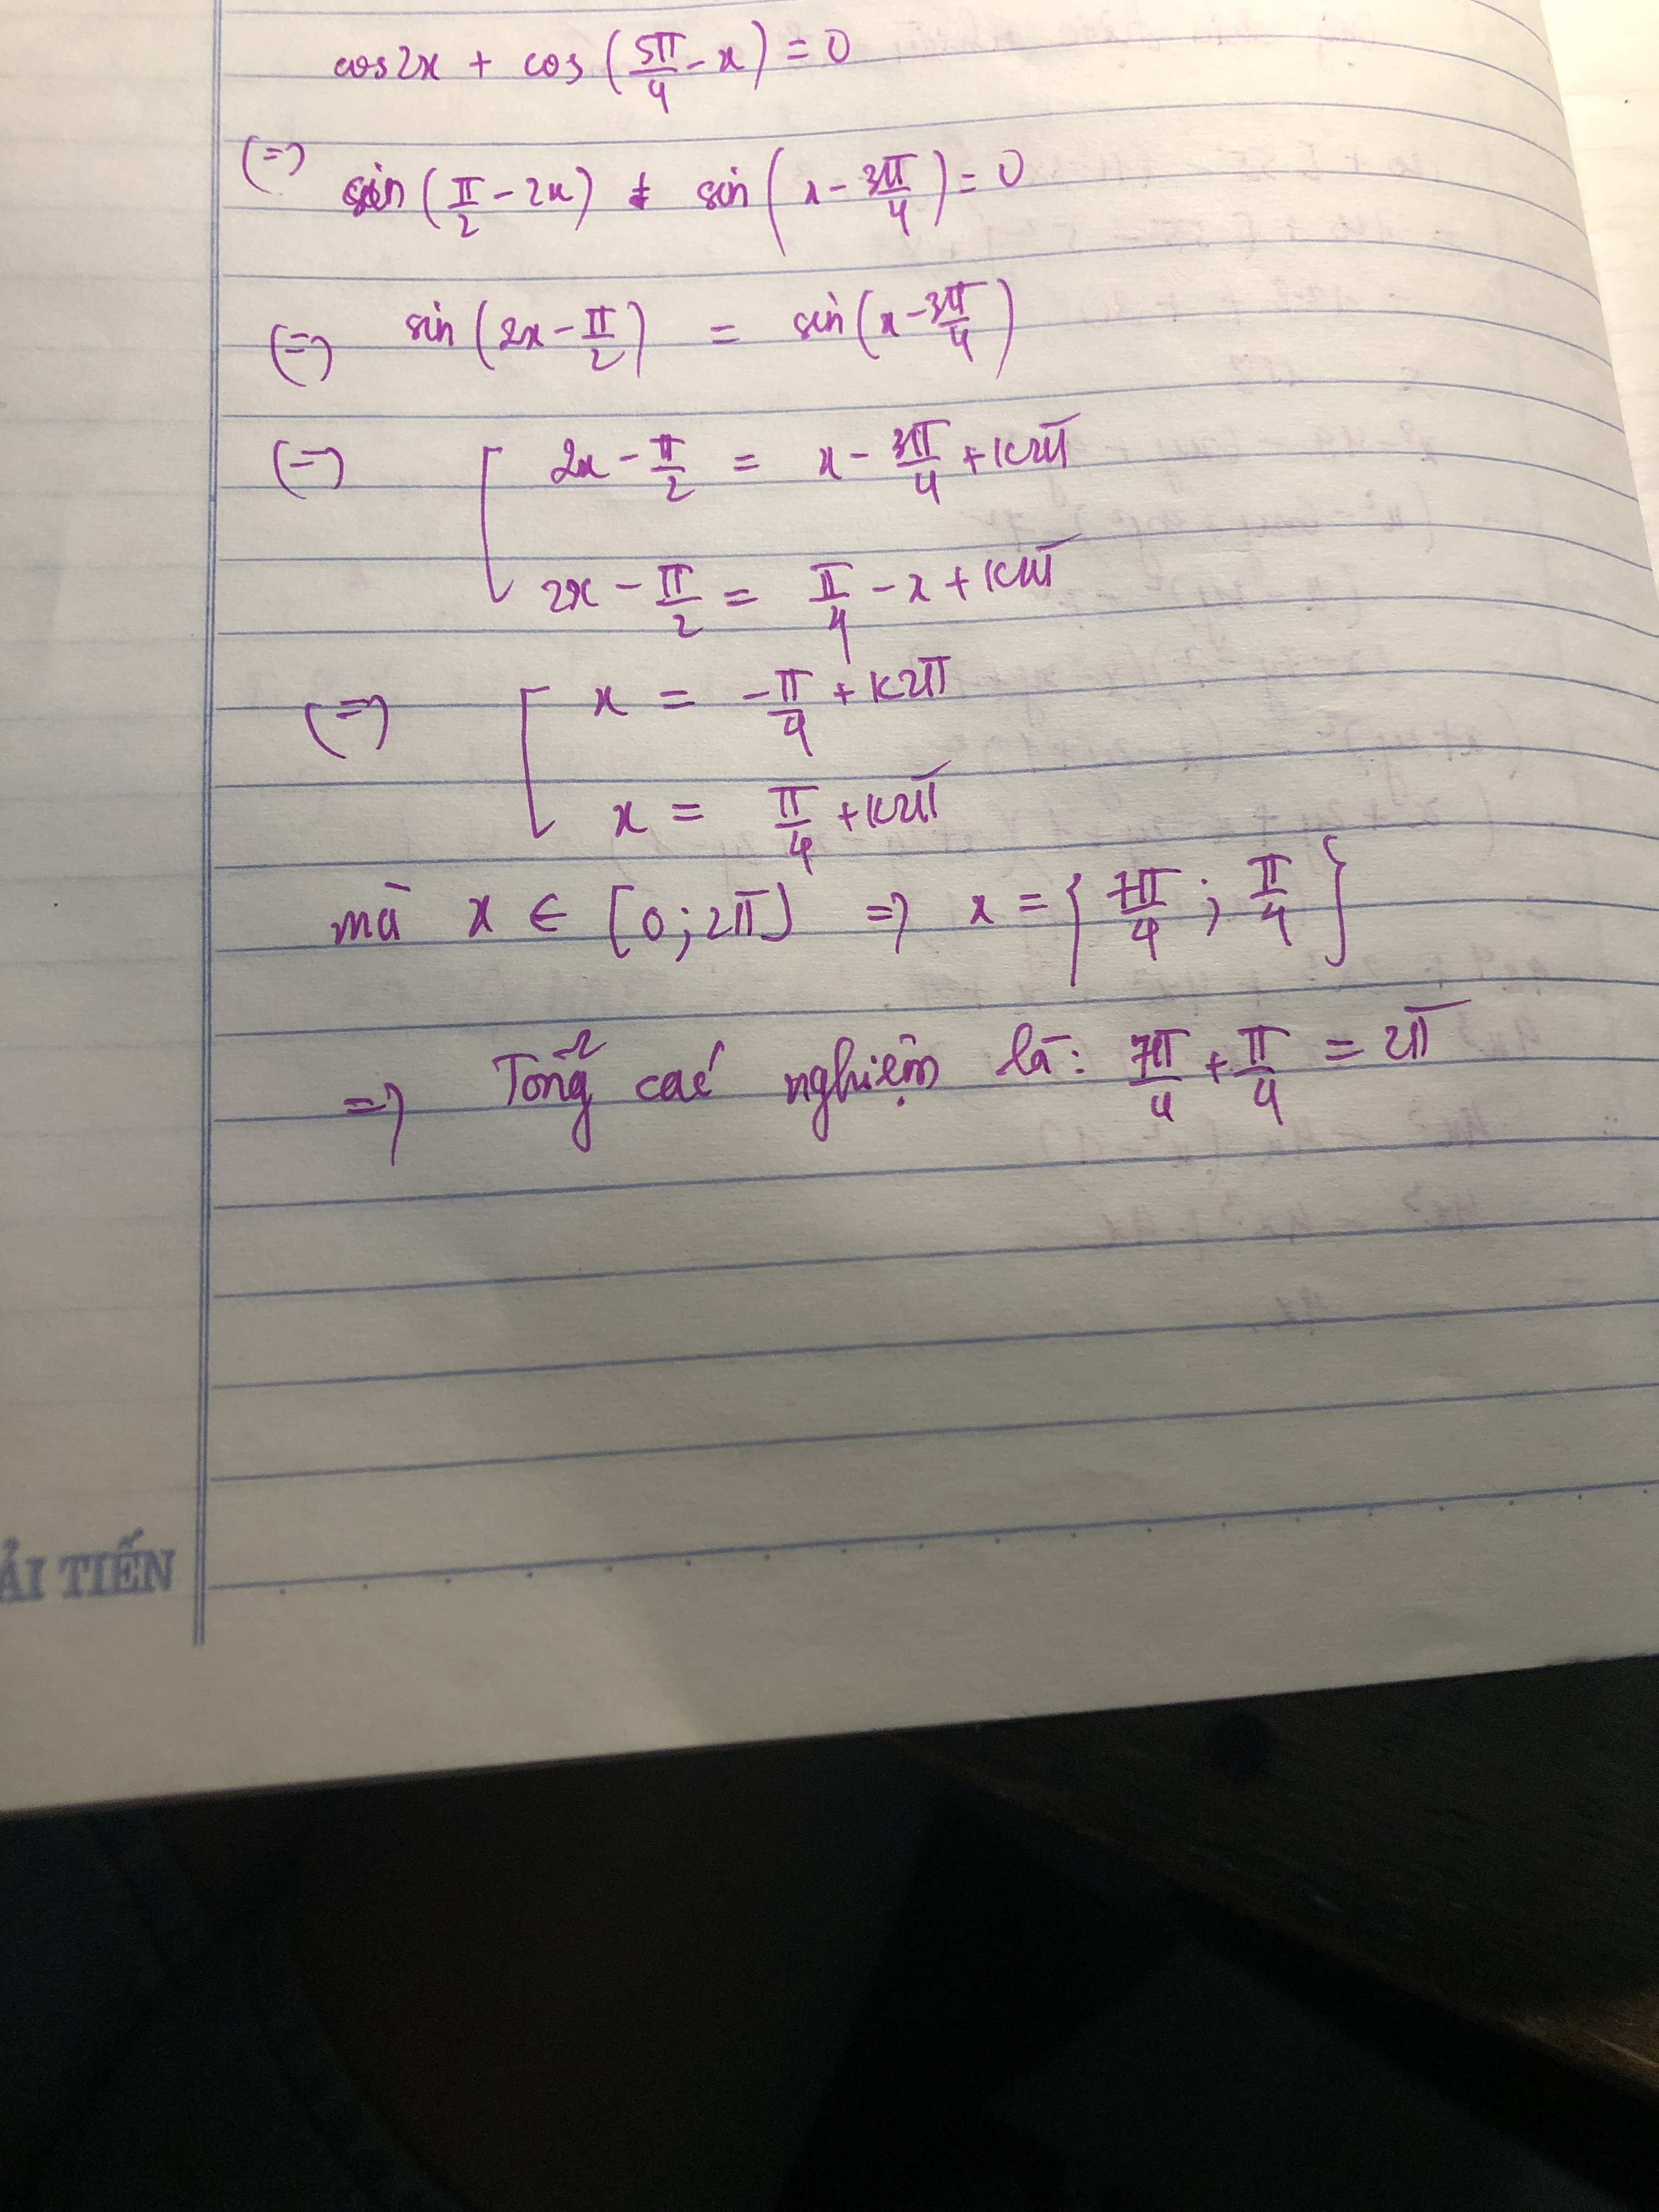 cos2x + cos(5π/4 - x) = 0
(=) sin(π/2 - 2x) + sin(x - 3π/4) = 0
(=) sin(2x - π/2) = sin(x - 3π/4)
(=) [ 2x - π/2 = x - 3π/4 + k2π
2x - π/2 = π/4 - x + k2π
(=) [ x = -π/4 + k2π
x = π/4 + k2π
mà x ∈ [0; 2π] => x = {7π/4; π/4}
=> Tổng các nghiệm là: 7π/4 + π/4 = 2π
ẢI TIẾN